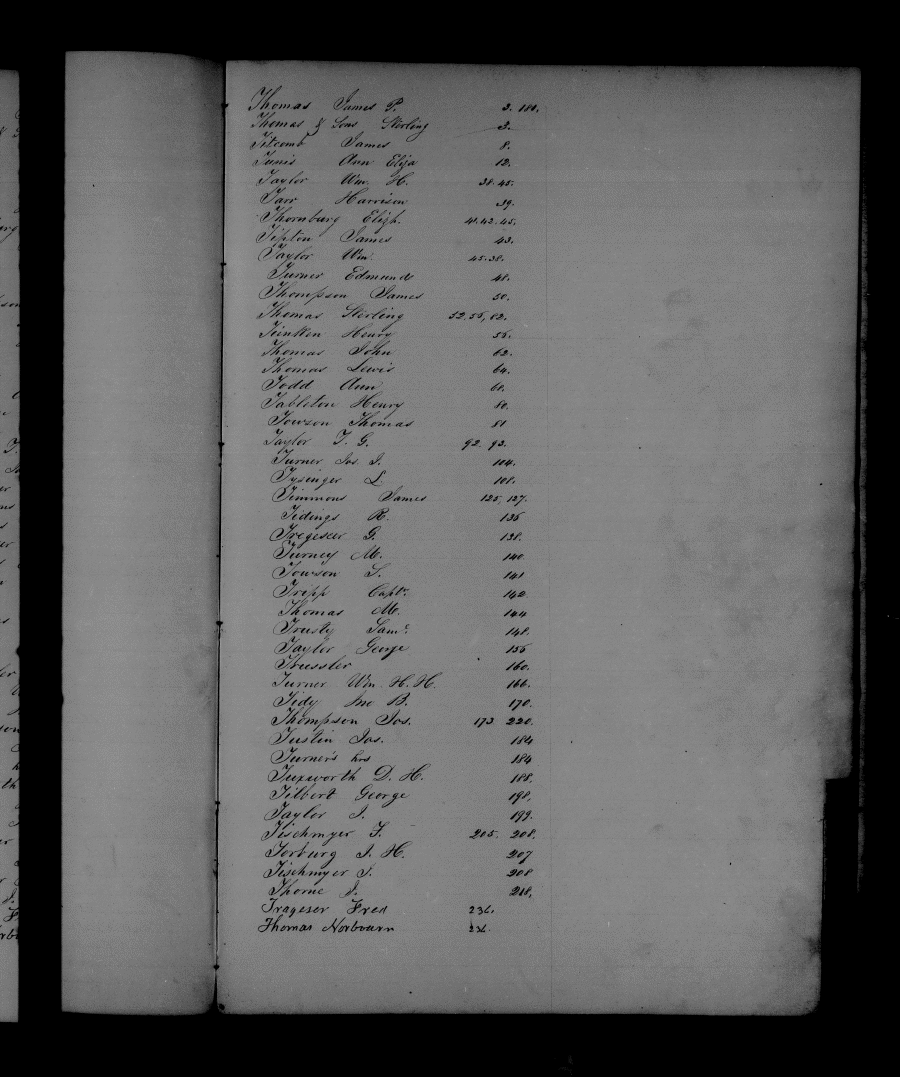 Thomas James P. 3. 180.
Thomas & Sons Sterling 3.
Titcomb James 8.
Tunis Ann Eliza 12.
Taylor Wm. H. 38. 45.
Tarr Harrison 39.
Thornburg Elizh. 41. 42. 45.
Tipton James 43.
Taylor Wm. 45. 38.
Turner Edmund 48.
Thompson James 50.
Thomas Sterling 52. 55, 82.
Henry
Thomas John 62.
Thomas Lewis 64.
Todd Ann
Tableton Henry 80.
Towson Thomas 81
Taylor T. G. 92. 93.
Turner Jos. J. 104.
Tysinger L. 108.
Timmons James 125, 127.
Tidings R. 136
Tregeser G. 138.
Turney M. 140
Towson S. 141
Tripp Captn. 142.
Thomas M. 144
Trusty Saml. 148.
Taylor George 156
Trusster 160.
Turner Wm. H. H. 166.
Tidy Jno B. 170.
Thompson Jos. 173 220.
Tustin Jas. 184
Turner's hrs 184
Tuxworth D. H. 188.
Tilbert George 198.
Taylor J. 199.
Tischmyer F. 205. 208.
Torburg J. H. 207
Tischmyer J. 208
Thorne J. 218.
Trageser Fred 236.
Thomas Norbourn 236.